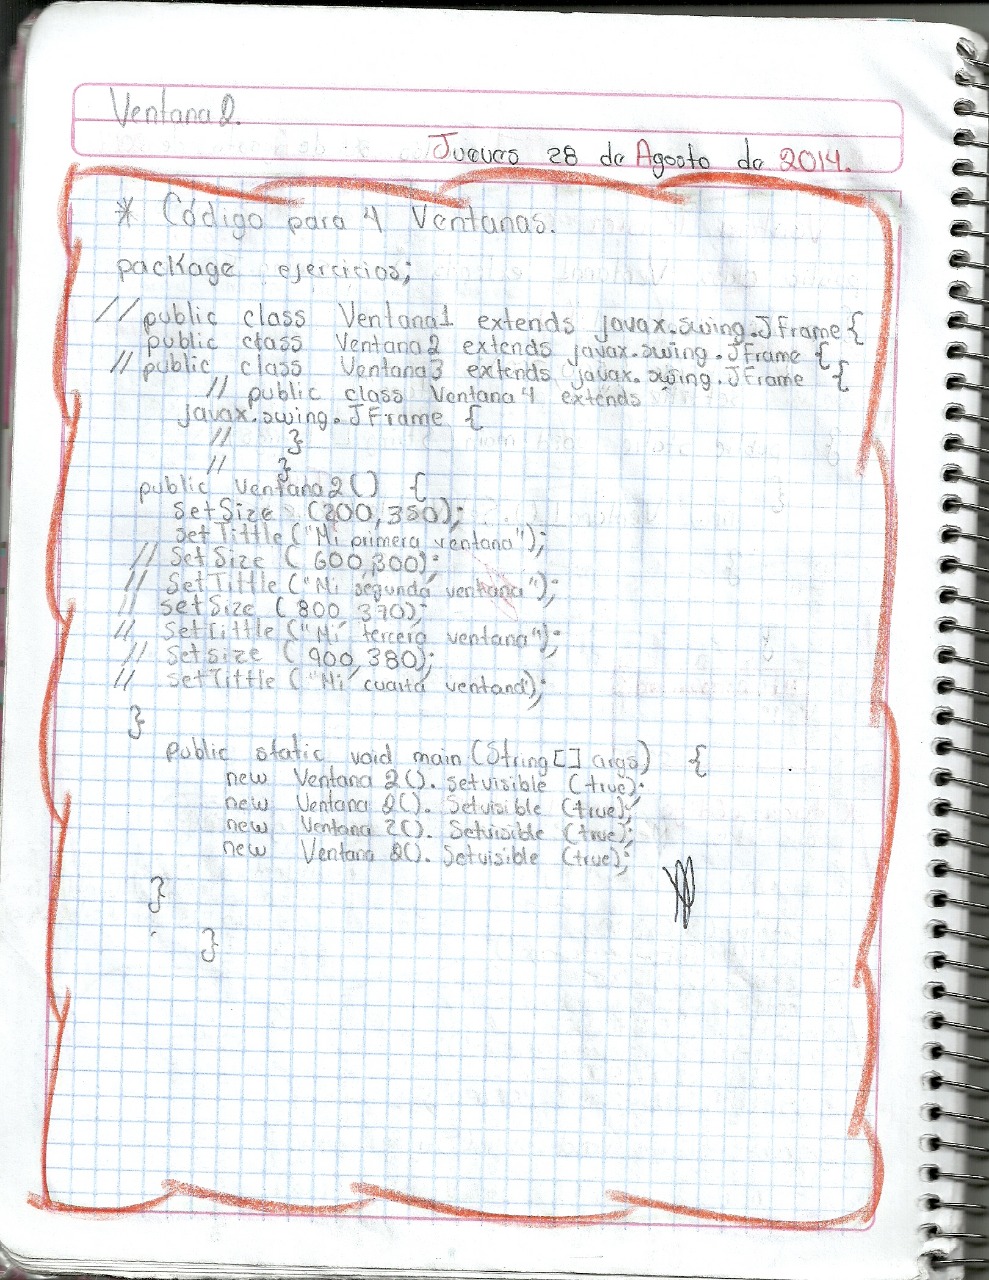 Ventana 2.
Jueves 28 de Agosto de 2014.
* Código para 4 Ventanas.
package ejercicios;
// public class Ventana1 extends javax.swing.JFrame {
public class Ventana2 extends javax.swing.JFrame {
// public class Ventana3 extends javax.swing.JFrame {
// public class Ventana4 extends
javax.swing.JFrame {
// }
// }
public Ventana2() {
setSize (200,350);
setTittle ("Mi primera ventana");
// SetSize ( 600,300);
// SetTittle ("Mi segunda ventana");
// setSize ( 800,370);
// SetTittle ("Mi tercera ventana");
// Setsize ( 900,380);
// setTittle ("Mi cuarta ventana);
}
public static void main (String[] args) {
new Ventana 2(). setvisible (true);
new Ventana 2(). Setvisible (true);
new Ventana 2(). Setvisible (true);
new Ventana 2(). Setvisible (true);
}
}